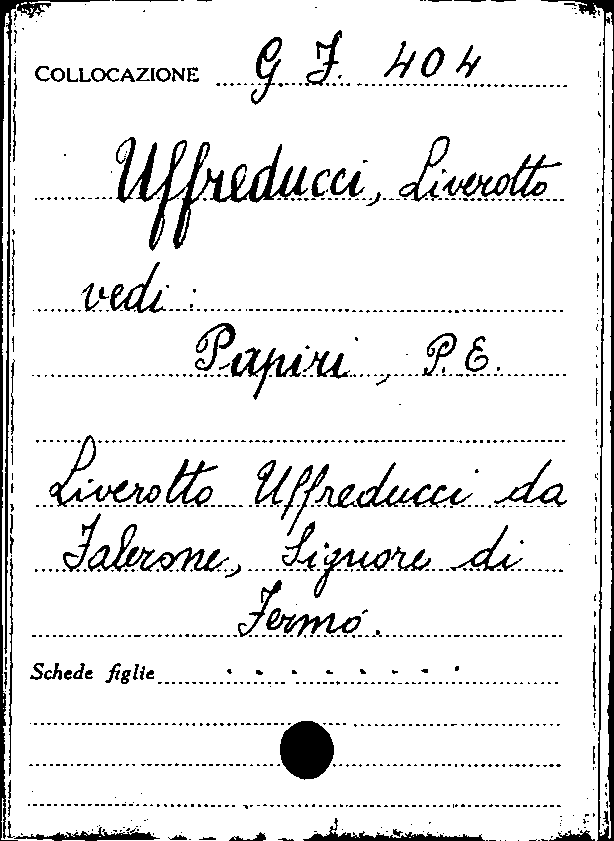 COLLOCAZIONE G. F. 404
Uffreducci, Liverotto
vedi :
Papiri, P. E.
Liverotto Uffreducci da
Falerone, Signore di
Fermo.
Schede figlie